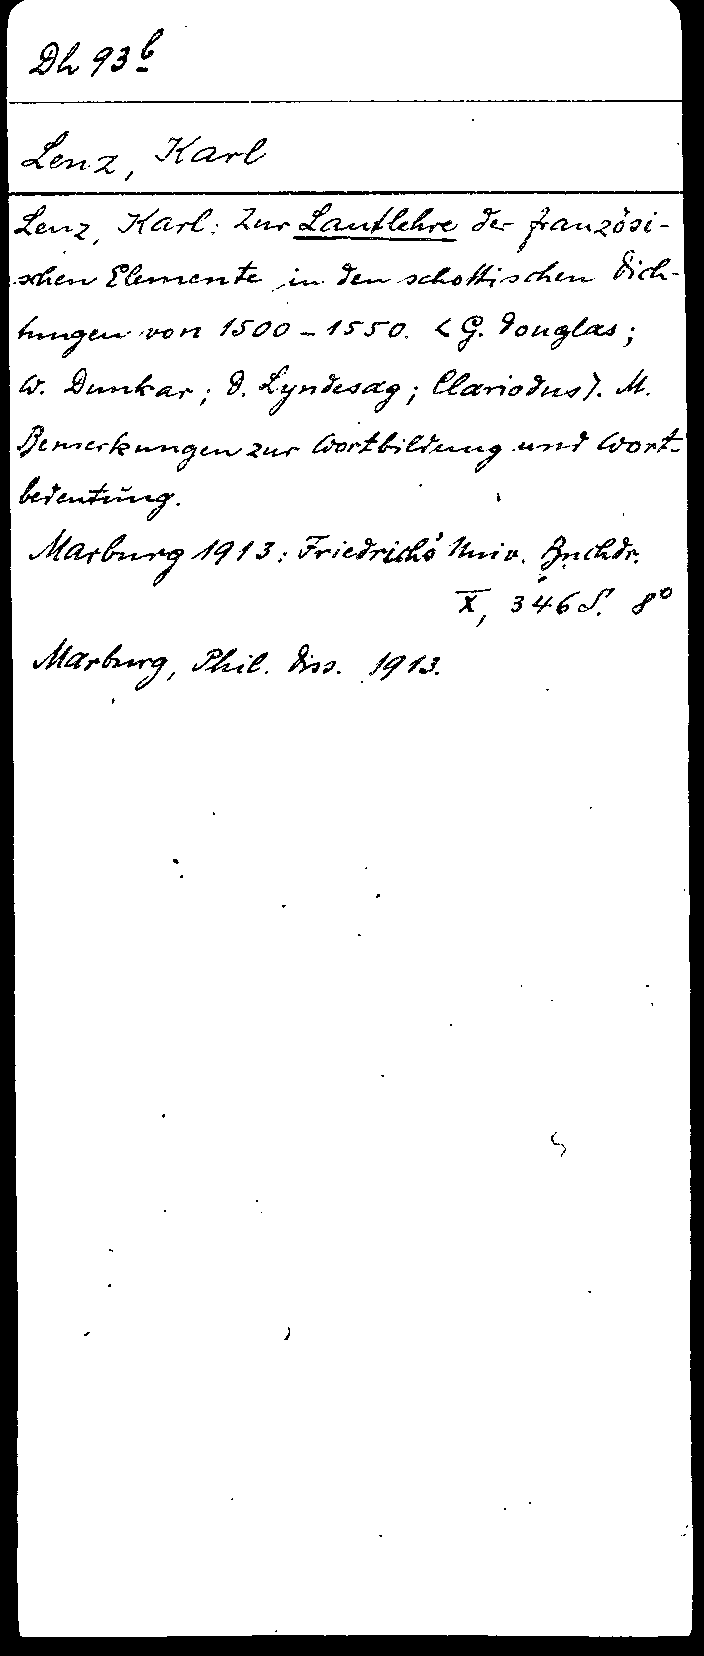 Dh 93 b
Lenz, Karl
Lenz, Karl: Zur Lautlehre der französi-
schen Elemente in den schottischen Dich-
tungen von 1500 - 1550. < G. Douglas;
W. Dunkar; D. Lyndesag; Clariodus>. M.
Bemerkungen zur Wortbildung und Wort-
bedeutung.
Marburg 1913: Friedrichs Univ. Buchdr.
X, 346 S. 8°
Marburg, Phil. Diss. 1913.